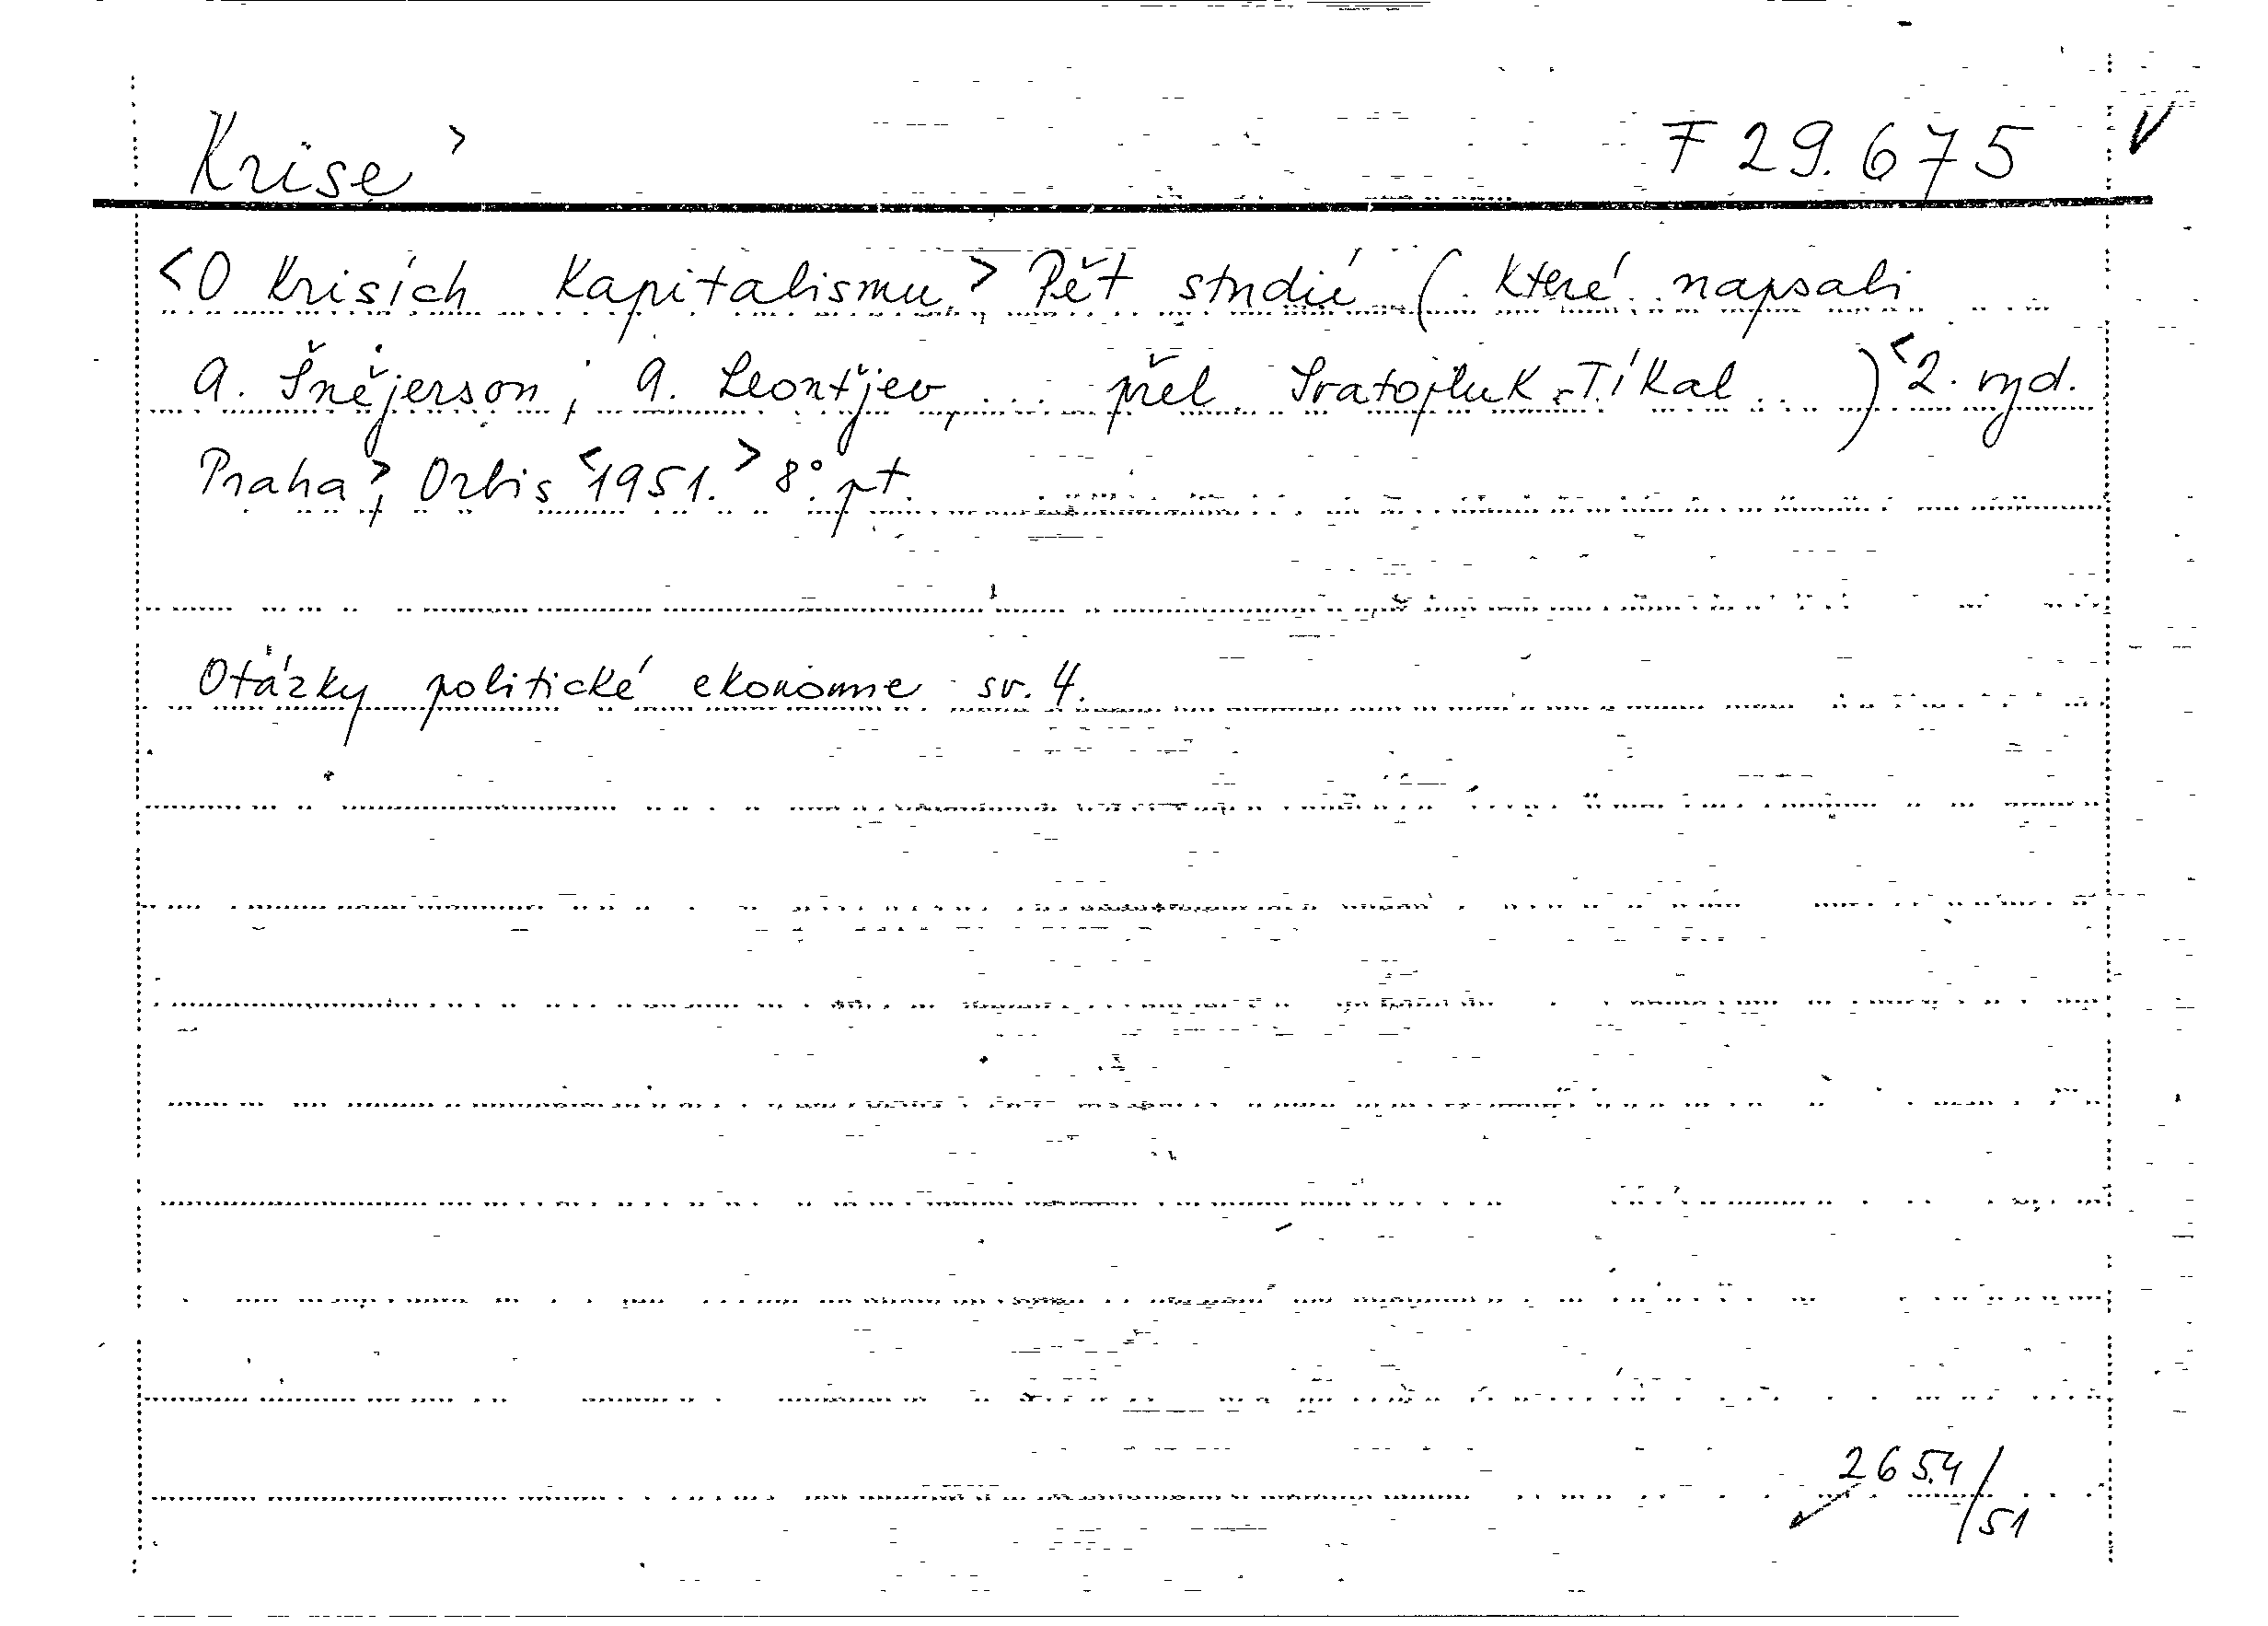 Krise > F 29.675 V
<O Krisích Kapitalismu.> Pět studií (. které napsali
A. Šnějerson, A. Leontjev, ... přel. Svatopluk Tíkal ..) <2. vyd.
Praha>, Orbis <1951.> 8°. pt.
Otázky politické ekonomie sv. 4.
2654/51